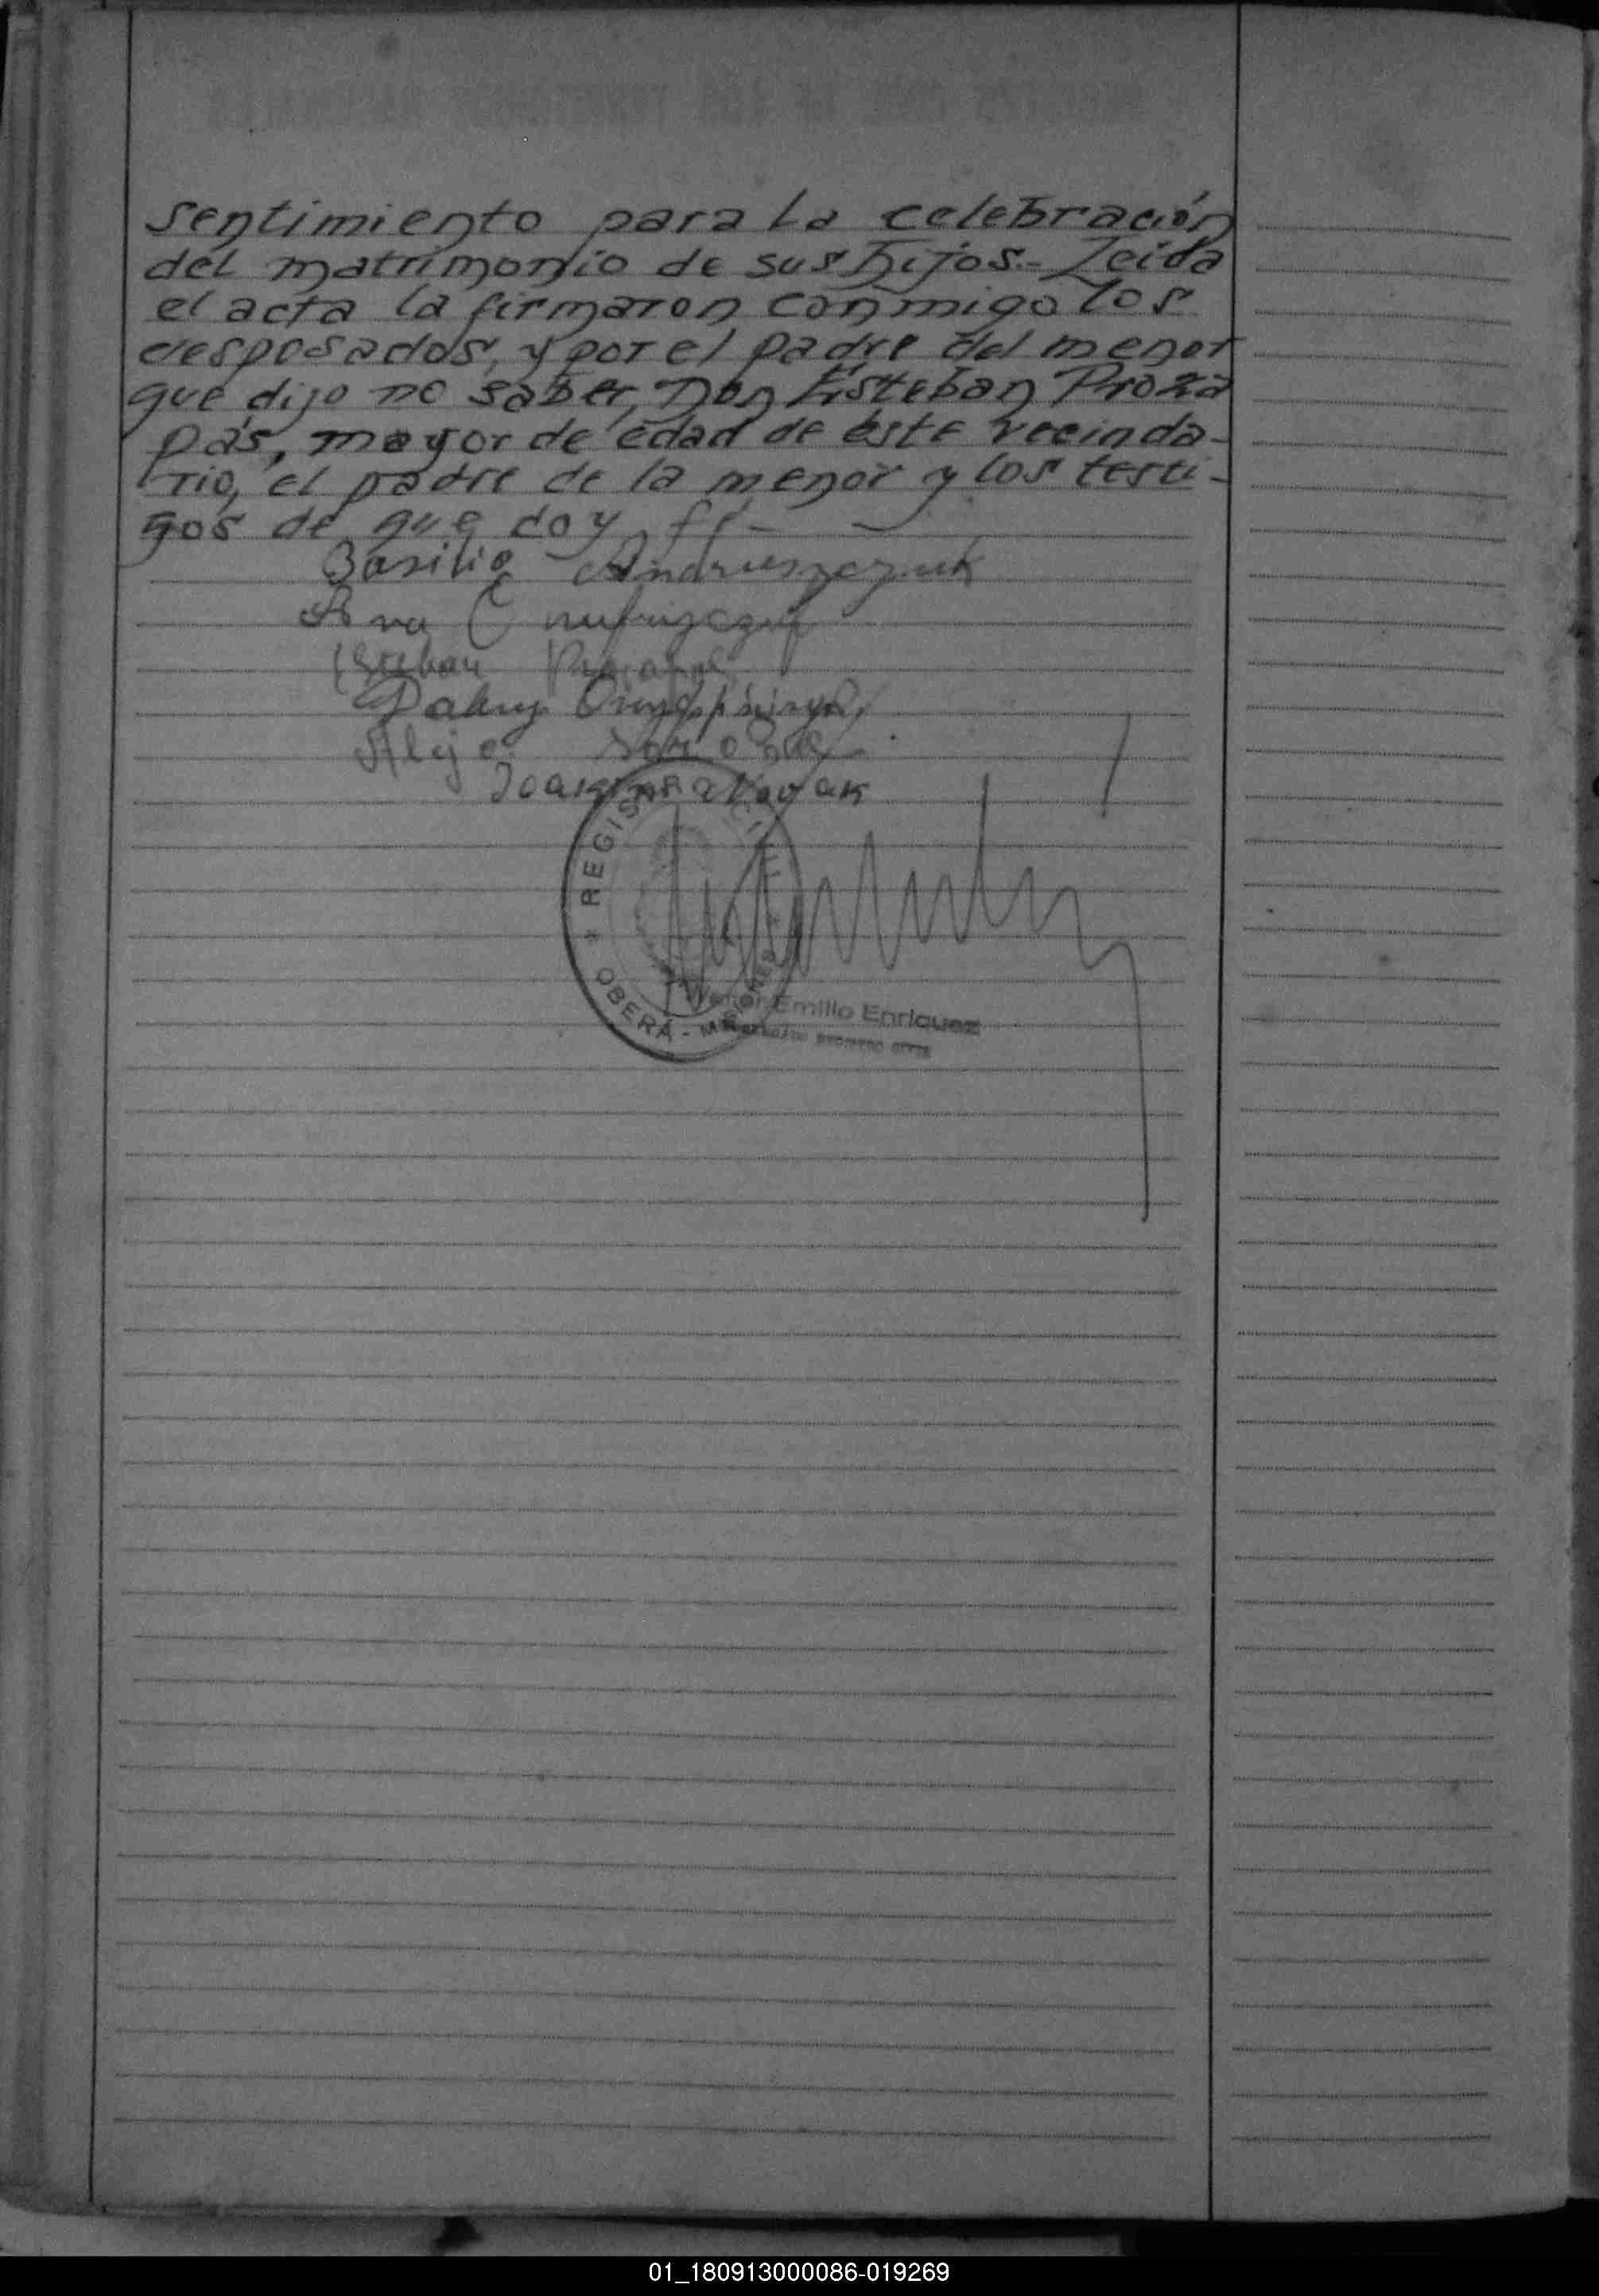 sentimiento para la celebración
del matrimonio de sus hijos.- Leida
el acta la firmaron conmigo los
desposados, y por el padre del menor
que dijo no saber, Don Esteban Proza
pás, mayor de edad de este vecinda-
rio, el padre de la menor y los testi-
gos de que doy fé-
Basilio Andruszczuk
Ana
Esteban
Alejo
REGISTRO CIVIL
OBERÁ - MISIONES
Emilio Enriquez
REGISTRO CIVIL
01_180913000086-019269